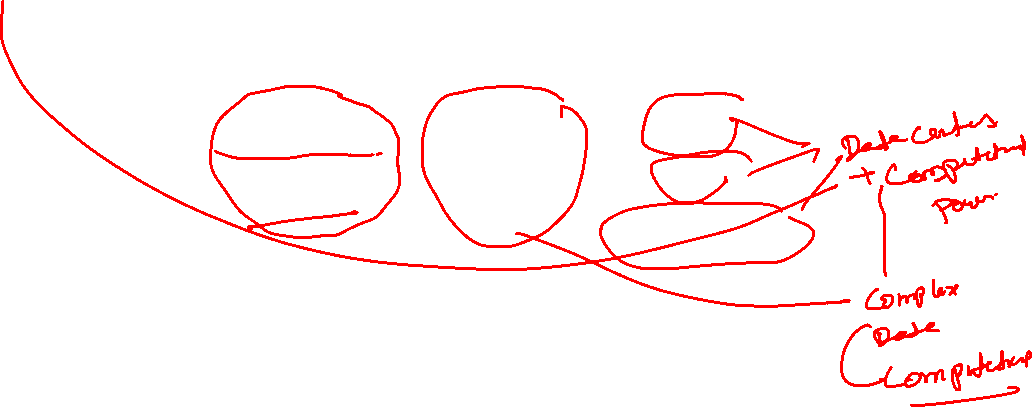 Data Centers
+ Computational
Power
Complex
Data
Computation